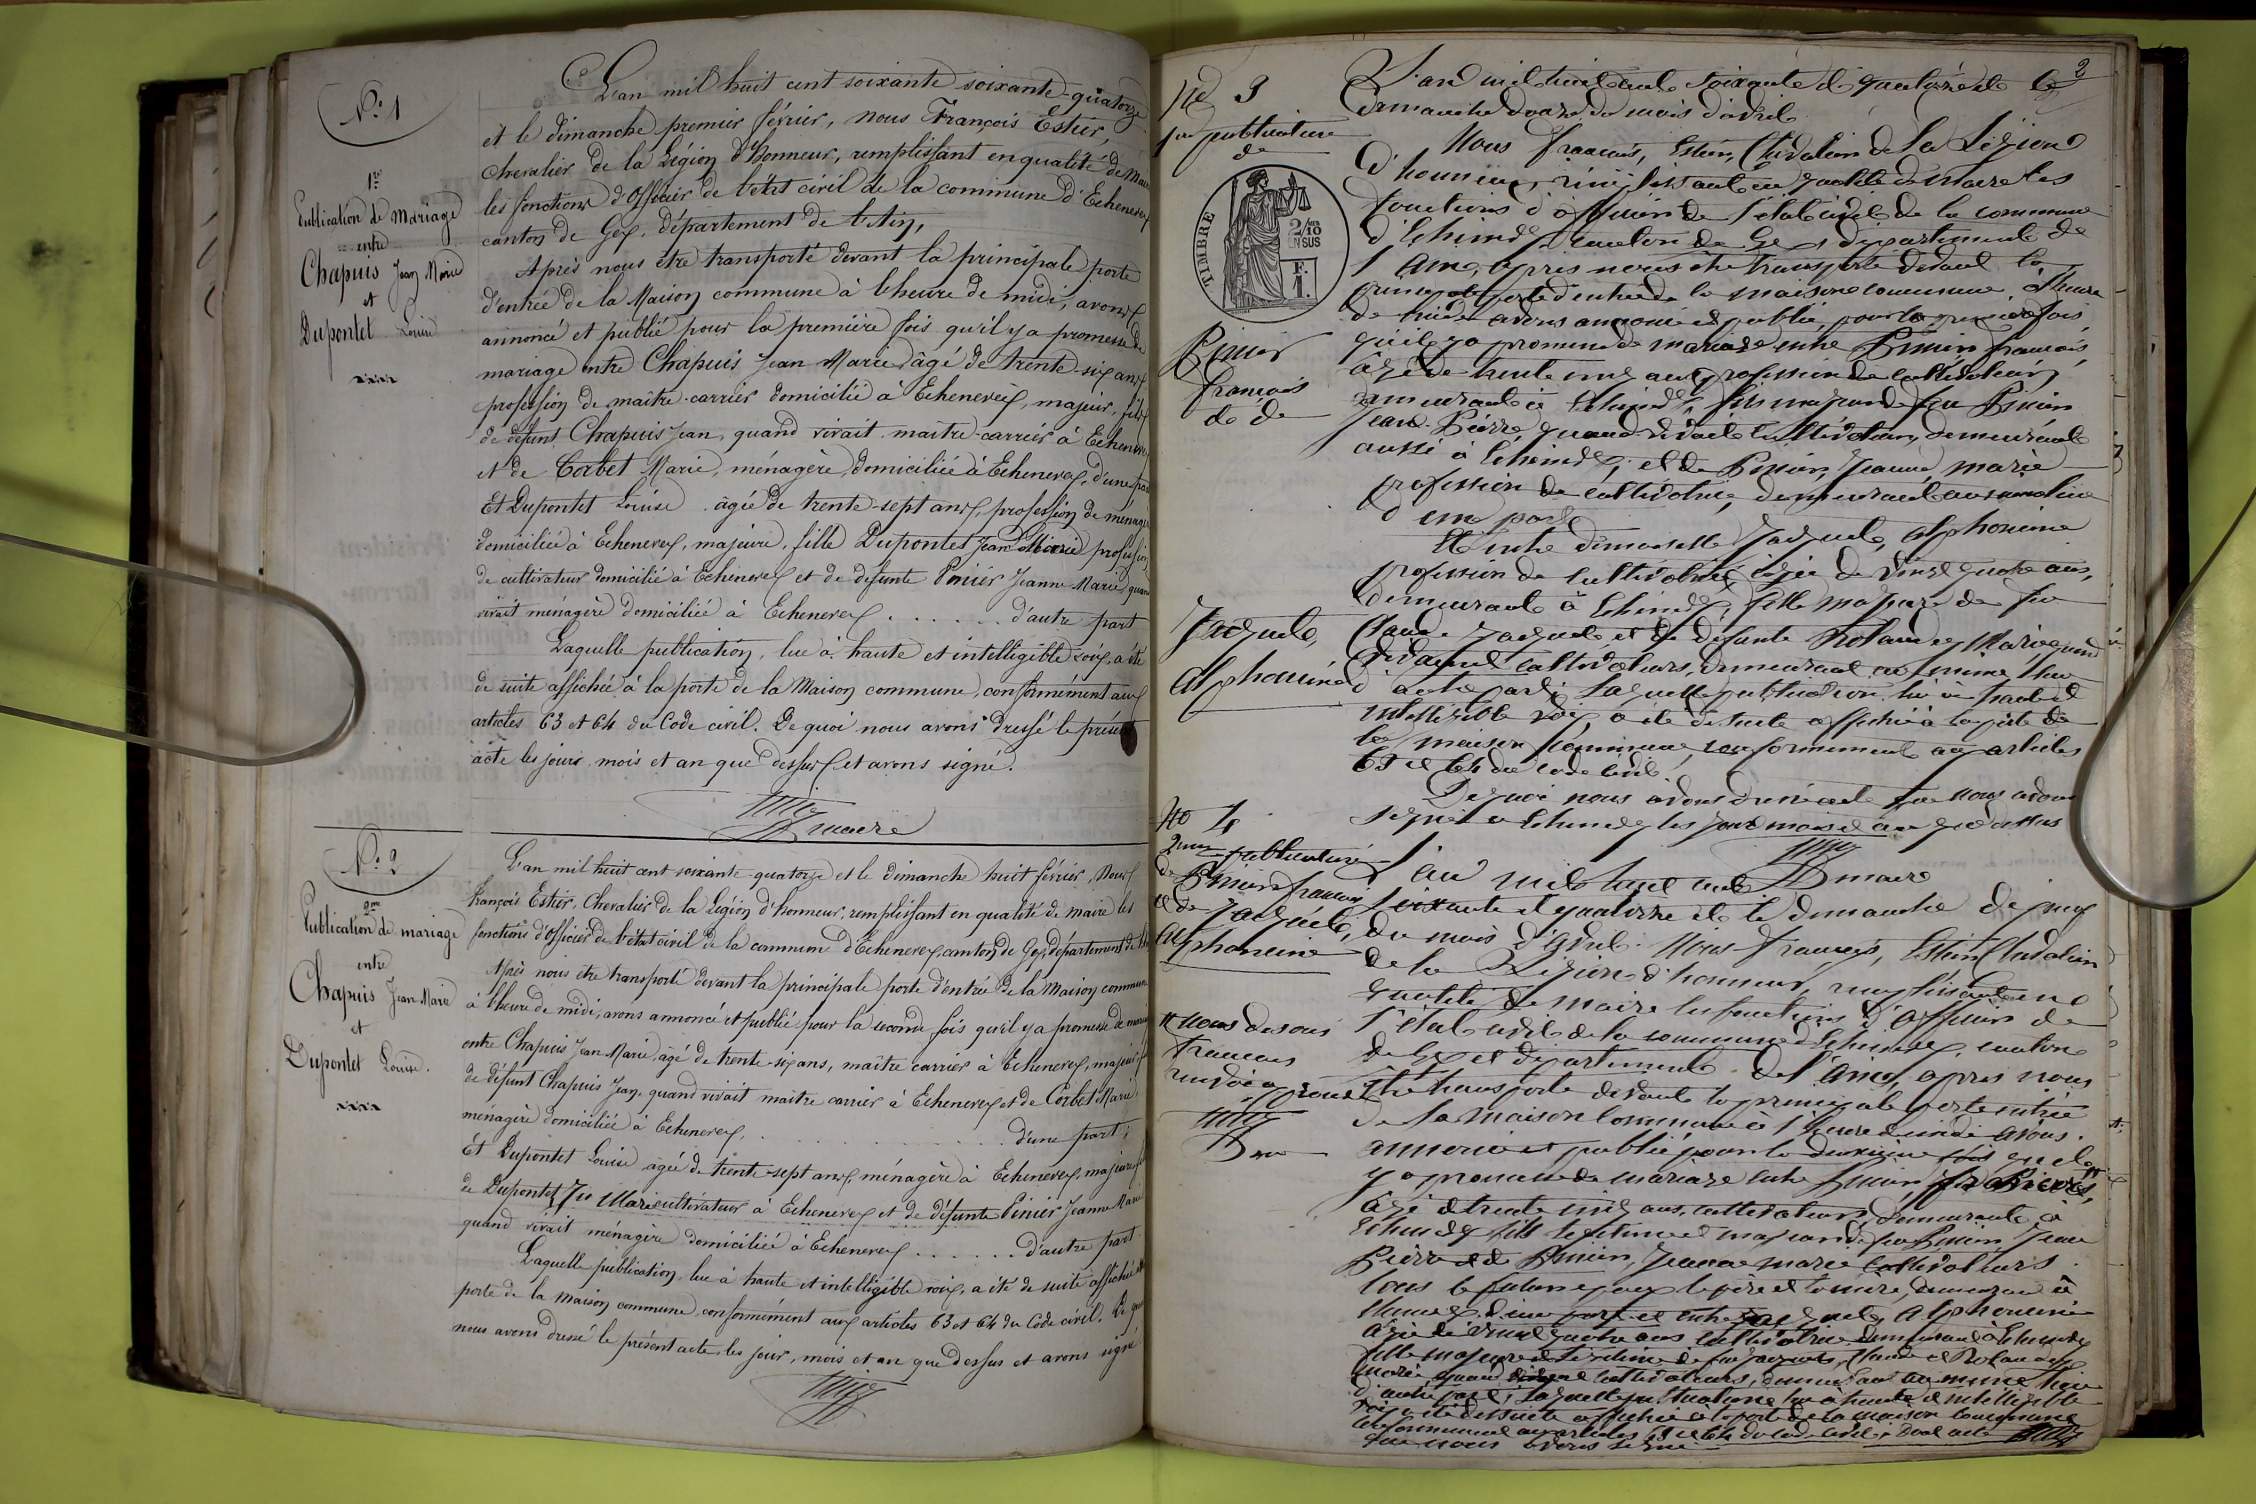 N° 1
1re
Publication de Mariage
entre
Chapuis Jean Marie
et
Dupontet Louise
L'an mil huit cent soixante soixante-quatorze
et le dimanche premier février, nous François Estier,
chevalier de la Légion d'Honneur, remplissant en qualité de Maire
les fonctions d'Officier de l'état civil de la commune d'Echenevex
canton de Gex, département de l'Ain,
Après nous être transporté devant la principale porte
d'entrée de la Maison commune à l'heure de midi, avons
annoncé et publié pour la première fois qu'il y a promesse de
mariage entre Chapuis Jean Marie âgé de trente-six ans
profession de maître-carrier domicilié à Echenevex, majeur, fils
de défunt Chapuis Jean, quand vivait maître-carrier à Echenevex
et de Corbet Marie, ménagère domiciliée à Echenevex, d'une part
Et Dupontet Louise âgée de trente-sept ans, profession de ménagère
domiciliée à Echenevex, majeure, fille Dupontet Jean Marie profession
de cultivateur domicilié à Echenevex et de défunte Pinier Jeanne Marie, quand
vivait ménagère domiciliée à Echenevex . . . . . . d'autre part
Laquelle publication, lue à haute et intelligible voix, a été
de suite affichée à la porte de la Maison commune, conformément aux
articles 63 et 64 du Code civil. De quoi nous avons dressé le présent
acte les jour, mois et an que dessus et avons signé.
maire
N° 2
2me
Publication de mariage
entre
Chapuis Jean Marie
et
Dupontet Louise.
L'an mil huit cent soixante-quatorze et le dimanche huit février, Nous
François Estier, Chevalier de la Légion d'honneur, remplissant en qualité de maire les
fonctions d'Officier de l'état civil de la commune d'Echenevex, canton de Gex, département de l'Ain
Après nous être transporté devant la principale porte d'entrée de la Maison commune
à l'heure de midi, avons annoncé et publié pour la seconde fois qu'il y a promesse de mariage
entre Chapuis Jean Marie, âgé de trente-six ans, maître carrier à Echenevex, majeur, fils
de défunt Chapuis Jean, quand vivait maître carrier à Echenevex et de Corbet Marie,
ménagère domiciliée à Echenevex, . . . . . . d'une part;
Et Dupontet Louise âgée de trente-sept ans, ménagère à Echenevex, majeure, fille
de Dupontet Jn Marie cultivateur à Echenevex et de défunte Pinier Jeanne Marie
quand vivait ménagère domiciliée à Echenevex . . . . . . d'autre part.
Laquelle publication, lue à haute et intelligible voix, a été de suite affichée à la
porte de la maison commune, conformément aux articles 63 et 64 du Code civil. De quoi
nous avons dressé le présent acte les jour, mois et an que dessus et avons signé
2
No 3
1re publication
de
TIMBRE
2/10
EN SUS
F.
1.
françois
de de
Jaquet,
Alphonsine
L'an mil huit cent soixante et quatorze et le
dimanche douze du mois d'avril
Nous françois, Estier, Chevalier de la Légion
d'honneur, remplissant en qualité de Maire les
fonctions d'officier de l'état civil de la commune
d'Echenevex, canton de Gex, département de
l'Ain, après nous être transporté devant la
principale porte d'entrée de la maison commune à l'heure
de midi avons annoncé et publié pour la première fois
qu'il y a promesse de mariage entre françois
âgé de trente cinq ans profession de cultivateur
demeurant à Echenevex, fils majeur de feu
Jean Pierre, quand vivait cultivateur, demeurant
aussi à Echenevex, et de Jeanne marie
profession de cultivatrice, demeurant au même lieu
d'une part
Et entre demoiselle Jaquet, alphonsine
profession de cultivatrice âgée de vingt quatre ans,
demeurant à Echenevex, fille majeure de feu
Claude Jaquet et de défunte Roland Marie quand
vivaient cultivateurs, demeurant au même lieu
d'autre part, Laquelle publication lue à haute et
intelligible voix, a été de suite affichée à la porte de
la maison commune, conformément aux articles
63 et 64 du code civil.
De quoi nous avons dressé acte que nous avons
signé à Echenevex les jour mois et an que dessus
maire
No 4
2me publication
de françois
et de Jaquet,
Alphonsine
nous
françois
renvoi
L'an mil huit cent
soixante et quatorze et le dimanche dix neuf
du mois d'Avril. Nous françois, Estier Chevalier
de la Légion d'honneur, remplissant en
qualité de maire les fonctions d'officier de
l'état civil de la commune d'Echenevex, canton
de Gex et département de l'Ain, après nous
être transporté devant la principale porte entrée
de la Maison commune à l'heure de midi avons
annoncé et publié pour la deuxième fois qu'il
y a promesse de mariage entre
âgé de trente cinq ans, cultivateur, demeurant à
Echenevex fils légitime et majeur de feu Jean
Pierre et de Jeanne marie cultivateurs
d'une part et entre Jaquet, Alphonsine
âgée de vingt quatre ans cultivatrice demeurant à Echenevex
fille majeure et légitime de feu Jaquet, Claude et Roland
marie quand cultivateurs, demeurant au même lieu
d'autre part; Laquelle publication lue à haute et intelligible
voix a été de suite affichée à la porte de la maison commune
conformément aux articles 63 et 64 du code civil, dont acte
que nous avons signé